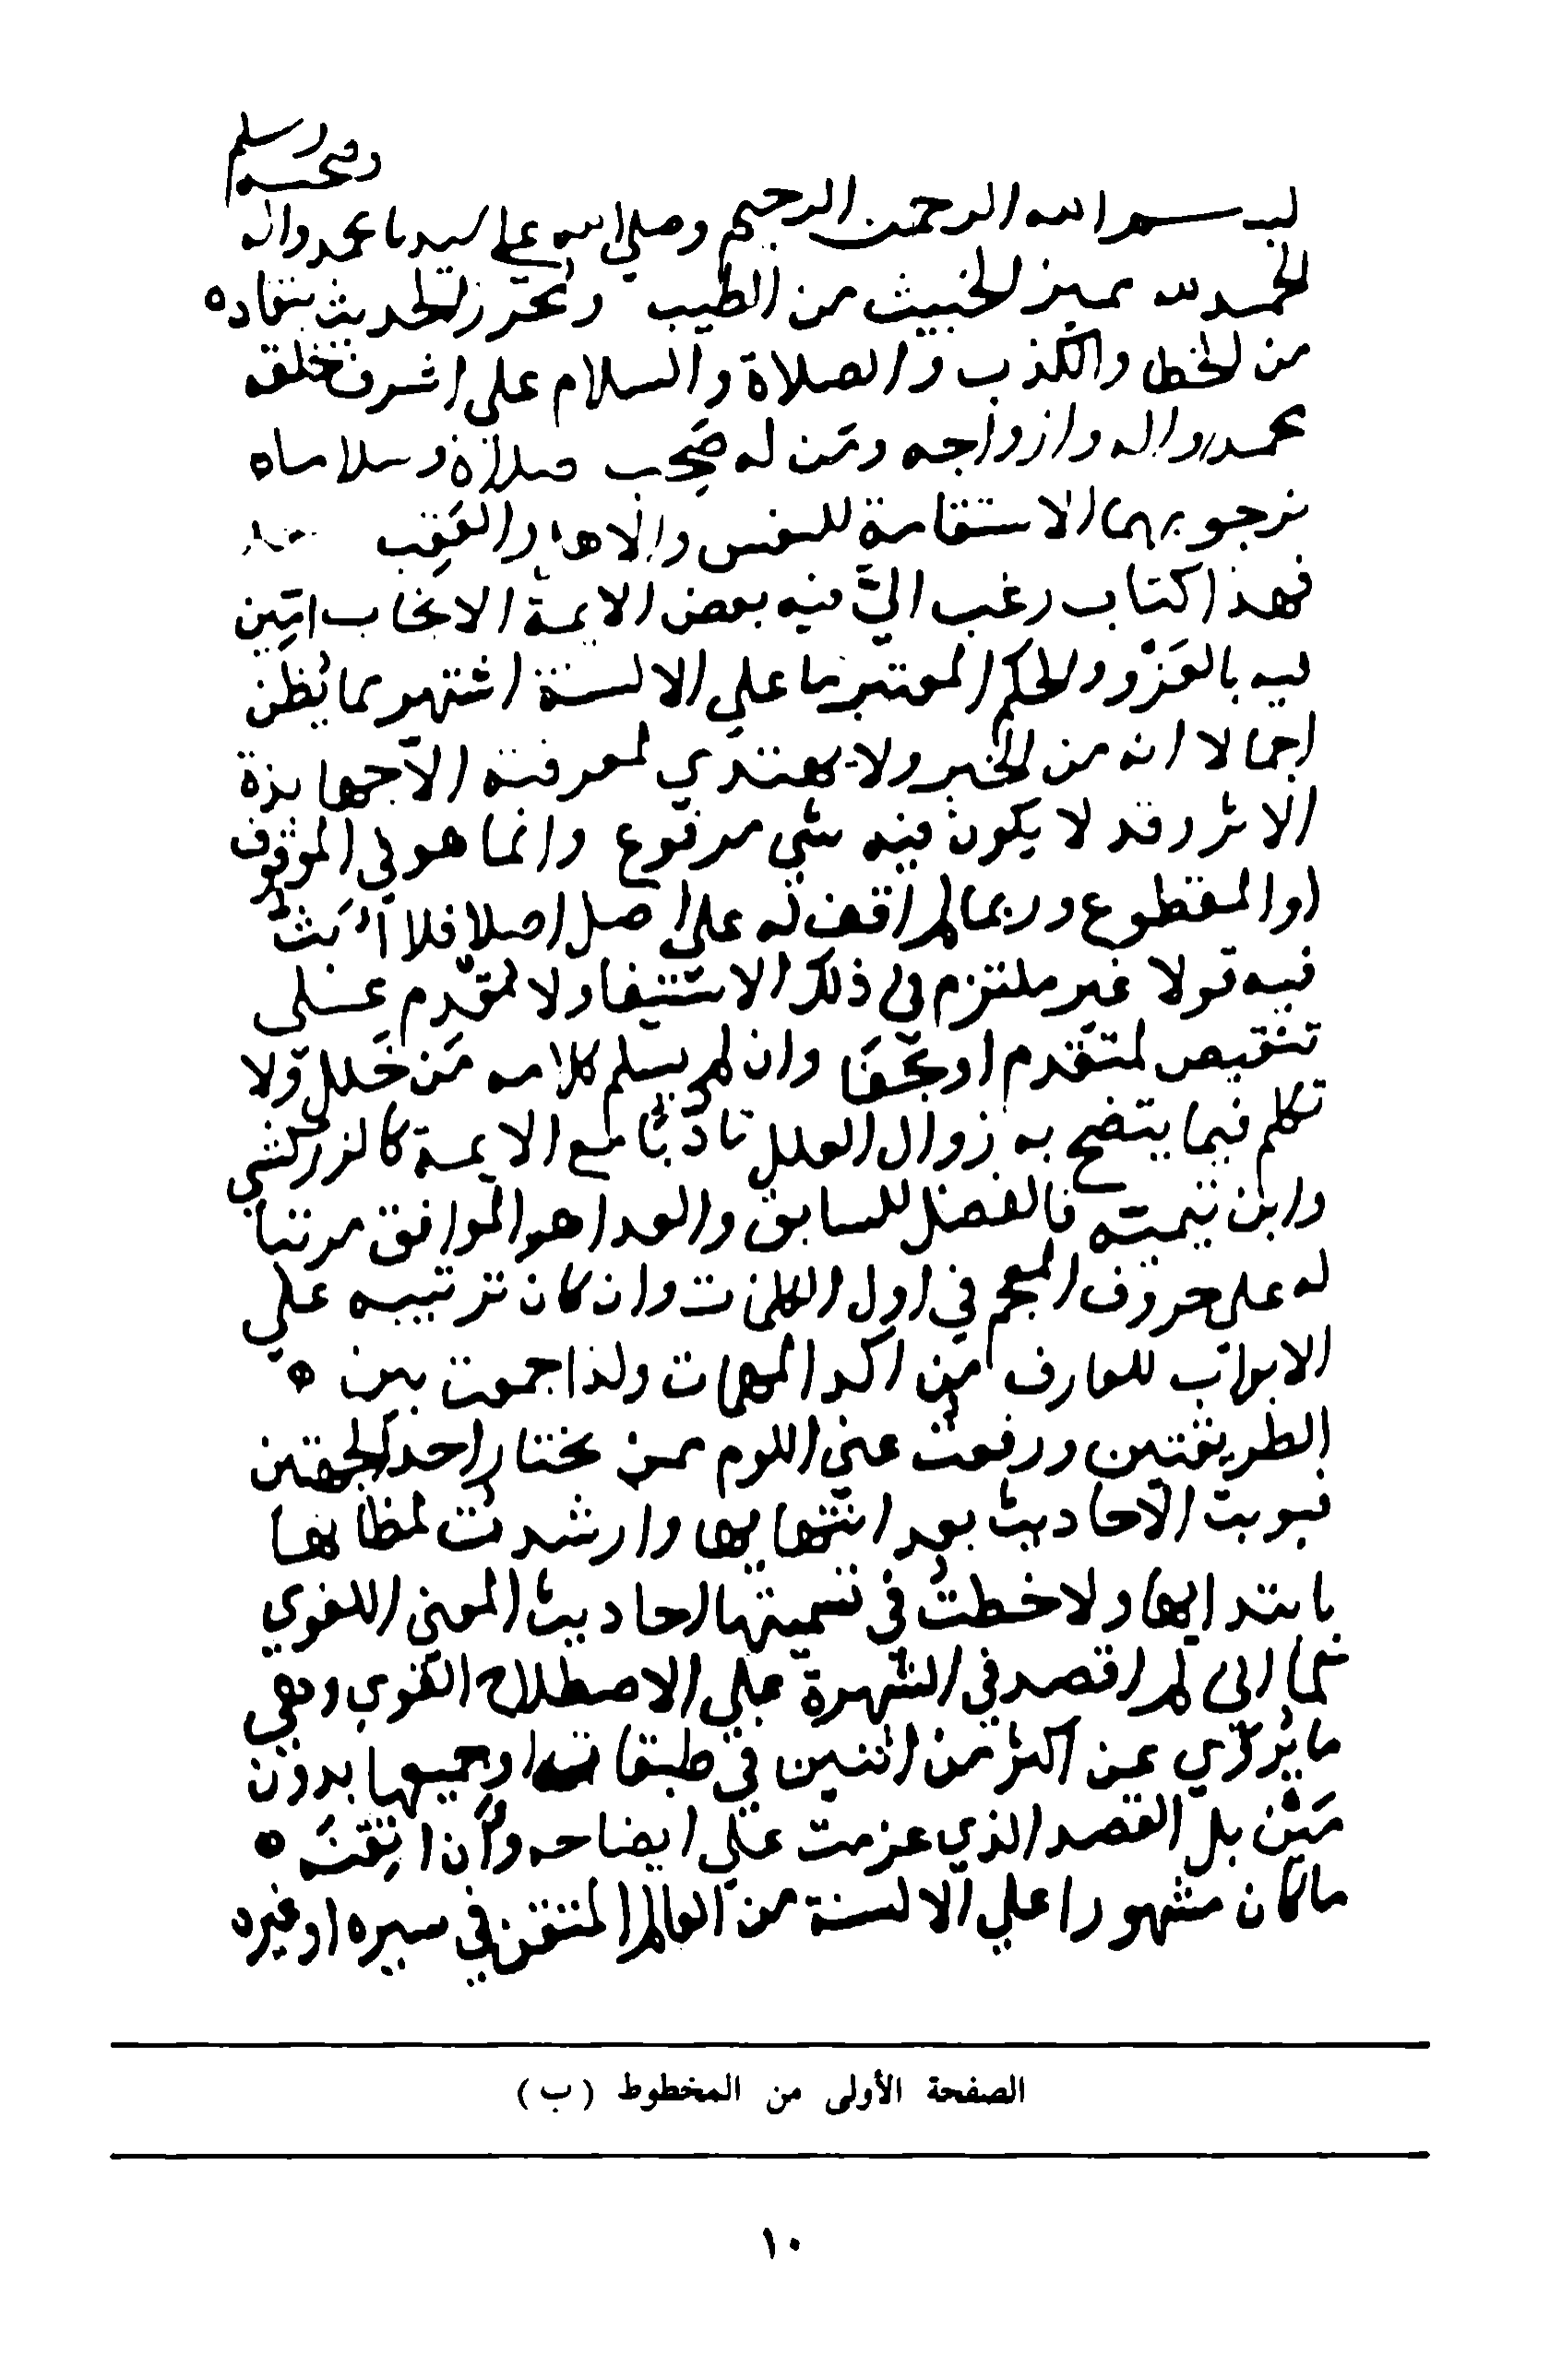 وصحبه وسلم
بسم الله الرحمن الرحيم وصلى الله على سيدنا محمد واله
الحمد لله مميز الخبيث من الطيب ومحرز الحديث بنقاده
من الخطا والكذب والصلاة والسلام على اشرف خلقه
محمد واله وازواجه ومن له صحب صلاة وسلاما
نرجو بهما الاستقامة للنفس والاهل والعقب
فهذا كتاب رغب اليّ فيه بعض الايمة الانجاب ابين
فيه بالعزو والحكم المعتبر ما على الالسنة اشتهر مما يُظن
اجمالا انه من الخبر ولا يهتدي لمعرفته الا جهابذة
الاثر وقد لا يكون فيه شي مرفوع وانما هو في الموقوف
او المقطوع وربما لم اقف له على اصل اصلا فلا أبُتُّ
فيه قولا غير ملتزم في ذلك الاستيفا ولا مقدم على
تنقيص لمتقدم او بجفا وان لم يسلم كلامه من خلل ولا
تكلم فيما يتضح به زوال العلل تادبا مع الايمة كالزركشي
وابن تيمية فالفضل للسابق والعدا هو الموافق مرتبا
له على حروف المعجم في اول الكلمات وان كان ترتيبه على
الابواب للعارف من اكد المهمات ولذا جمعت بين
الطريقتين ورفعت عني اللوم ممن يختار احد الجهتين
فبوبت الاحاديث بعد انتهايها وارشدت لمظانها
بابتدايها ولاحظت في تسميتها احاديث المعنى اللغوي
كما انى لم اقصد في الشهرة على الاصطلاح القوي وهي
ما يُروى عن اكثر من اثنين في طبقاته او جميعها بدون
مين بل القصد الذي عزمت على ايضاحه وان اتقنه
ما كان مشهورا على الالسنة من العالم المتقن في سيره او غيره
الصفحة الأولى من المخطوط (ب)
١٠